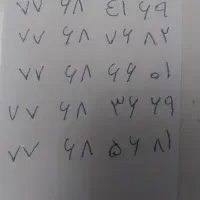 ۷۷ ۶۸ ۴۱ ۶۹
۷۷ ۶۸ ۷۶ ۸۲
۷۷ ۶۸ ۶۶ ۵۱
۷۷ ۶۸ ۳۶ ۶۹
۷۷ ۶۸ ۵۶ ۸۱